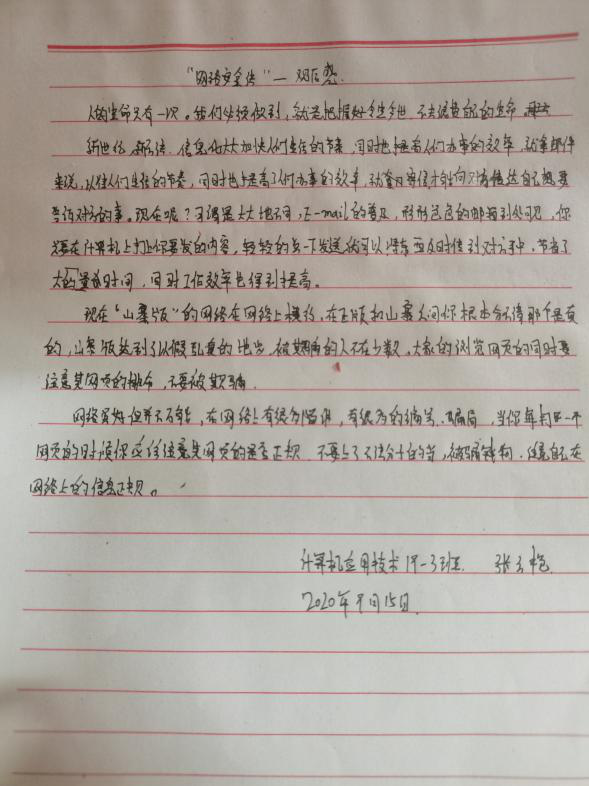 "网络安全传"—观后感.
人的生命只有一次。我们必须做到,就是把握好今生今世,不去浪费自己的生命
新世纪,新气,信息化大大加快人们生活的节奏,同时也提高人们办事的效率,就拿邮件
来说,以往人们生活的节奏,同时也提高了人们办事的效率,就拿写寄信才能向对方传达自己想要
告诉对方的事。现在呢?可谓是大大地不同,E-mail的普及,形形色色的邮箱到处可见,你
只要在计算机上打上你要发的内容,轻轻的点一下发送就可以将东西及时传到对方手中,节省了
大的时间,同时工作效率也得到提高。
现在"山寨版"的网络在网络上横行,在正版和山寨之间你根本分不清那个是真
的,山寨版达到了以假乱真的地步,被欺骗的人不在少数,大家的浏览网页的同时要
注意其网页的,不要被欺骗.
网络虽好但并不万能,在网络上有很多,有很多的骗局,当你每打开一个
网页的时候你应该注意其网页的是否正规,不要上了不法分子的当,被骗钱财,注意自己在
网络上的信息正规。
计算机应用技术19-3班 张
2020年9月15日.